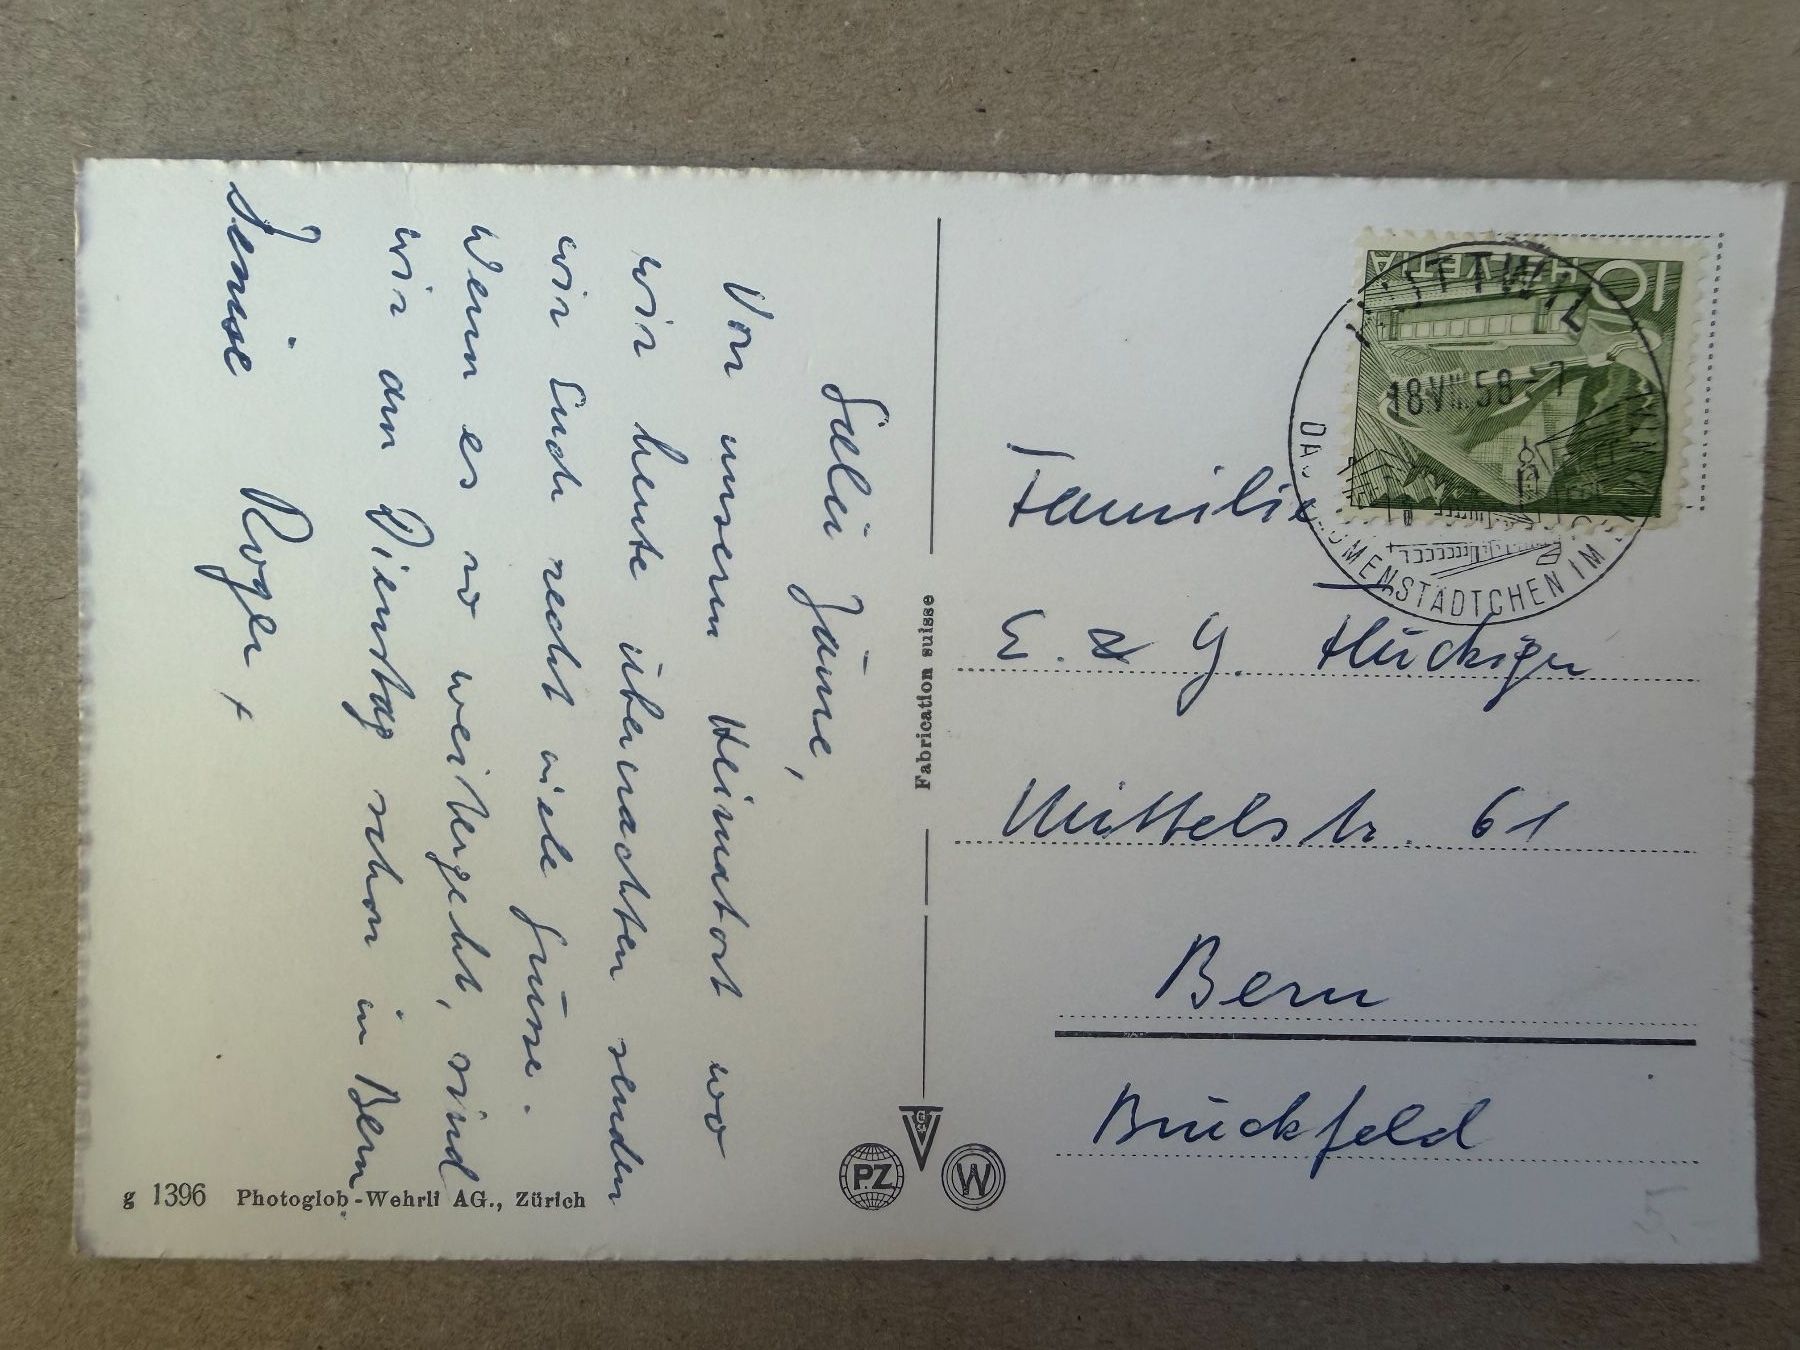 Salü Jäme,
Von unserm Heimatort wo
wir heute übernachten senden
wir Euch recht viele Grüsse.
Wenn es so weitergeht, sind
wir am Dienstag schon in Bern
Roger +
g 1396 Photoglob-Wehrli AG., Zürich
Fabrication suisse
PZ
W
HELVETIA 10
18.VIII.58-7
Familie
E. & G. Flückiger
Mittelstr. 61
Bern
Brückfeld